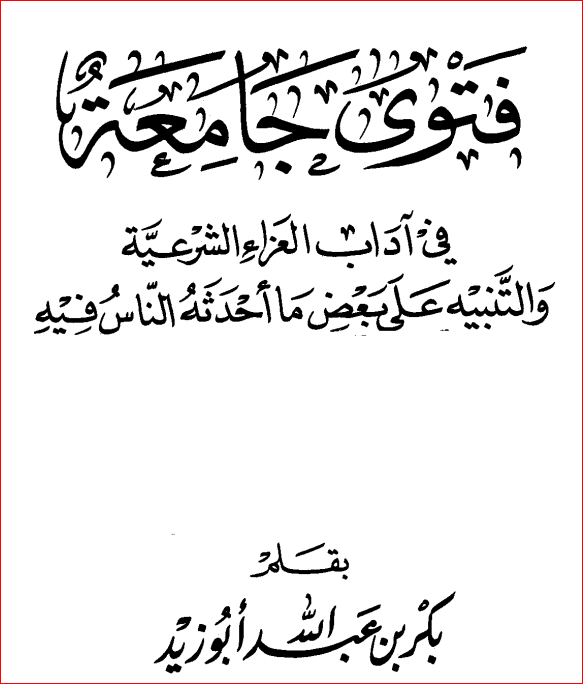 فَتْوَى جَامِعَةٌ
فِيْ آدَاب العَزاءِ الشَرْعِيَّة
وَالتَّنبِيْهِ عَلَى بَعْضِ مَا أَحْدَثَهُ النّاسُ فِيْهِ
بقَلم
بكْر بن عَبد الله أبُو زيْد